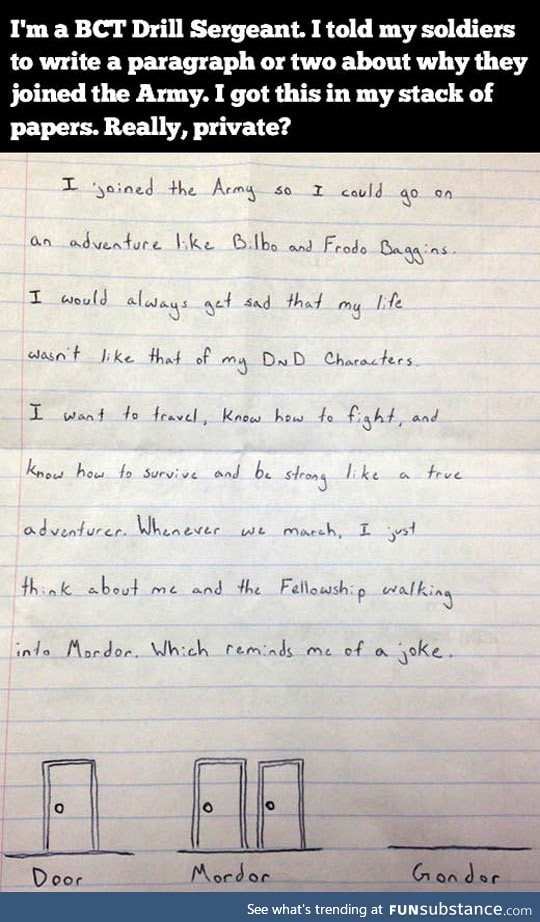 I'm a BCT Drill Sergeant. I told my soldiers
to write a paragraph or two about why they
joined the Army. I got this in my stack of
papers. Really, private?
I joined the Army so I could go on
an adventure like Bilbo and Frodo Baggins.
I would always get sad that my life
wasn't like that of my DnD Characters.
I want to travel, know how to fight, and
know how to survive and be strong like a true
adventurer. Whenever we march, I just
think about me and the Fellowship walking
into Mordor. Which reminds me of a joke.
Door Mordor Gondor
See what's trending at FUNsubstance.com